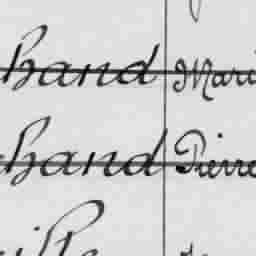 hand Mari
hand Pierre
ille